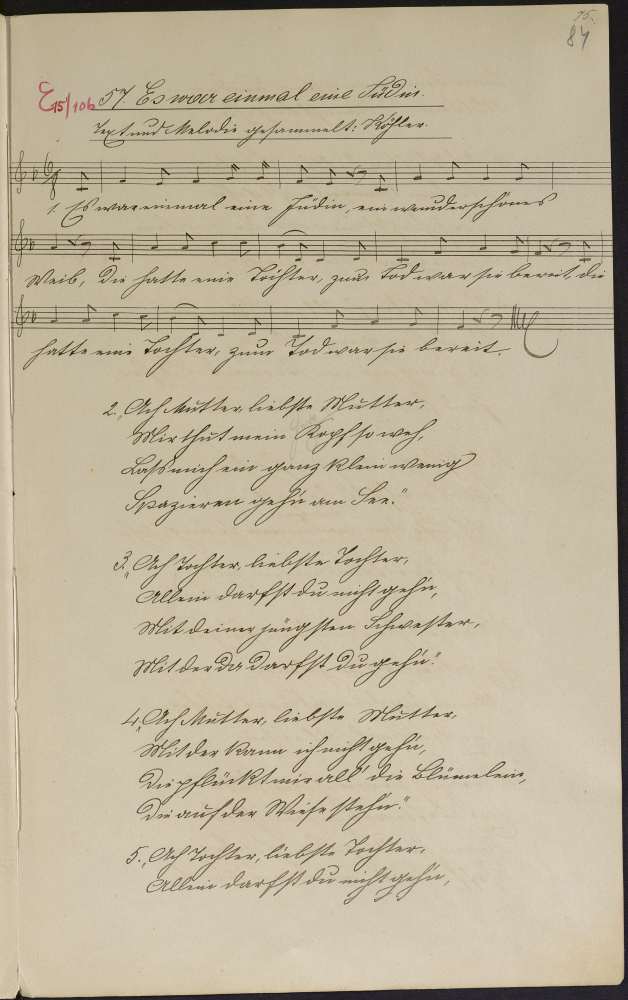 75.
84
E 15/106 57. Es war einmal eine Jüdin.
Text und Melodie gesammelt: Köhler.
1. Es war einmal eine Jüdin, ein wunderschönes
Weib, die hatte eine Tochter, zum Tod war sie bereit, die
hatte eine Tochter, zum Tod war sie bereit.
2. „Ach Mutter, liebste Mutter,
Mir thut mein Kopf so weh,
Lass mich ein ganz klein wenig
Spazieren geh'n am See."
3. „Ach Tochter, liebste Tochter,
Allein darfst du nicht geh'n,
Mit deiner jüngsten Schwester,
Mit der da darfst du geh'n."
4. „Ach Mutter, liebste Mutter,
Mit der kann ich nicht geh'n,
Die pflückt mir all' die Blümelein,
Die auf der Wiese steh'n."
5. „Ach Tochter, liebste Tochter,
Allein darfst du nicht geh'n,